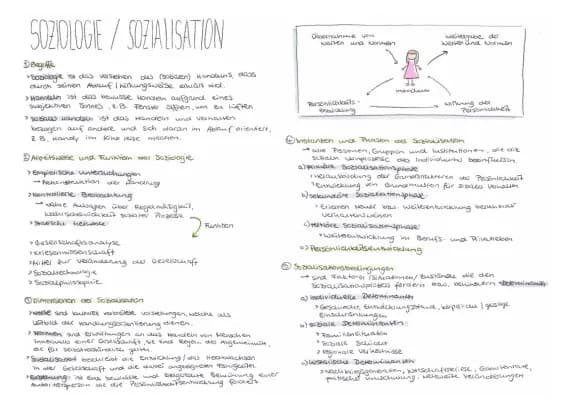 SOZIOLOGIE / SOZIALISATION
① Begriffe
Soziologie ist das Verstehen des (sozialen) Handelns, dass
durch seinen Ablauf / Wirkungsweise erklärt wird.
Handeln ist das bewusste Handeln aufgrund eines
subjektiven Sinnes, z.B. Fenster öffnen, um zu lüften.
Soziales Handeln ist das Handeln und Verhalten
bezogen auf andere und sich daran im Ablauf orientiert,
z.B. Handy im Kino leise machen.
② Arbeitsweise und Funktion der Soziologie
Empirische Untersuchungen
→ der
Kontrollierte Beobachtung
→ Aussagen über Regelmäßigkeit,
Wahrscheinlichkeit sozialer Prozesse
Funktion
Gesellschaftsanalyse
Krisenwissenschaft
Mittel zur Veränderung der Gesellschaft
Sozialtechnologie
Sozialphilosophie
③ Dimensionen der Sozialisation
Werte sind kulturell Vorstellungen, welche als
Leitbild der Handlungsorientierung dienen.
Normen sind an das Handeln von Menschen
innerhalb einer Gesellschaft, sie sind Regeln der Allgemeinheit,
die für selbstverständlich gelten.
Sozialisation beschreibt die Entwicklung / das Heranwachsen
in der Gesellschaft und die dabei angeeigneten Fähigkeiten.
Erziehung ist eine bewusste und Bemühung einer
die die Persönlichkeitsentwicklung fördert.
Übernahme von
Werten und Normen
Weitergabe der
Werte und Normen
Individuum
Persönlichkeits-
entwicklung
Wirkung der
Persönlichkeit
④ Instanzen und Phasen der Sozialisation
→ alle Personen, Gruppen und Institutionen, die die
des Individuums beeinflussen
a) primäre Sozialisationsphase
der Grundstrukturen der Persönlichkeit
Entwicklung von Grundmustern für soziales Verhalten
b) sekundäre Sozialisationsphase
Erlernen neuer bzw. Weiterentwicklung bekannter
Verhaltensweisen
c) tertiäre Sozialisationsphase
Weiterentwicklung im Berufs- und Privatleben
⇒ Persönlichkeitsentwicklung
⑤ Sozialisationsbedingungen
→ sind Faktoren / Situationen / Zustände die den
Sozialisationsprozess fördern bzw. behindern
a) individuelle Determinanten
Geschlecht, Entwicklungsstand, körperl. / geistige
Einschränkungen
b) soziale Determinanten
Familiensituation
soziale Schicht
regionale Verhältnisse
c) historische Determinanten
Nachkriegsgeneration, Wirtschaftskrise,
politische Umschwung, weltweite Veränderungen